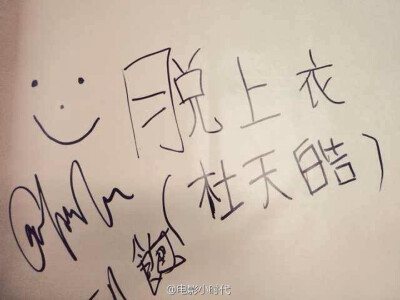 脱上衣
(杜天皓)
@电影小时代